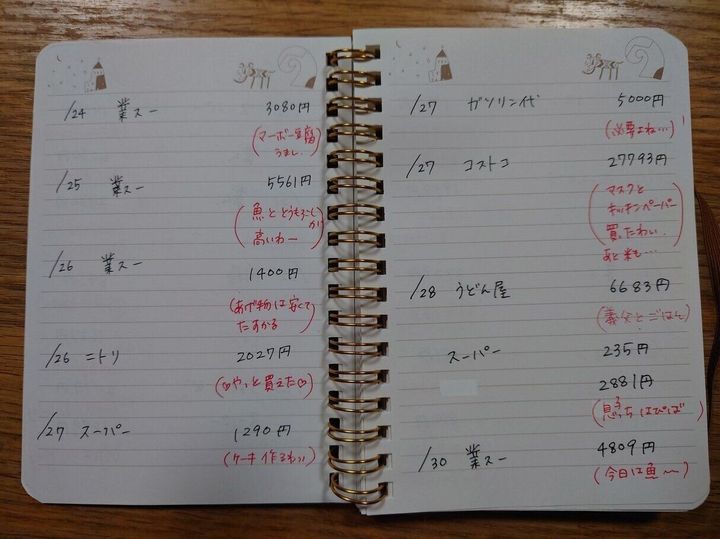 /24 業スー 3080円
(マーボー豆腐
うまし)
/25 業スー 5561円
(魚ととうもろこしが
高いわー)
/26 業スー 1400円
(あげ物は安くて
たすかる)
/26 ニトリ 2027円
(♡やっと買えた♡)
/27 スーパー 1290円
(ケーキ作るわい)
/27 ガソリン代 5000円
(必要よね…)
/27 コストコ 27793円
(マスクと
キッチンペーパー
買ったわい.
あと米も…)
/28 うどん屋 6683円
(義父とごはん)
スーパー 235円
2881円
(息子っちはぴば)
/30 業スー 4809円
(今日は魚〜)